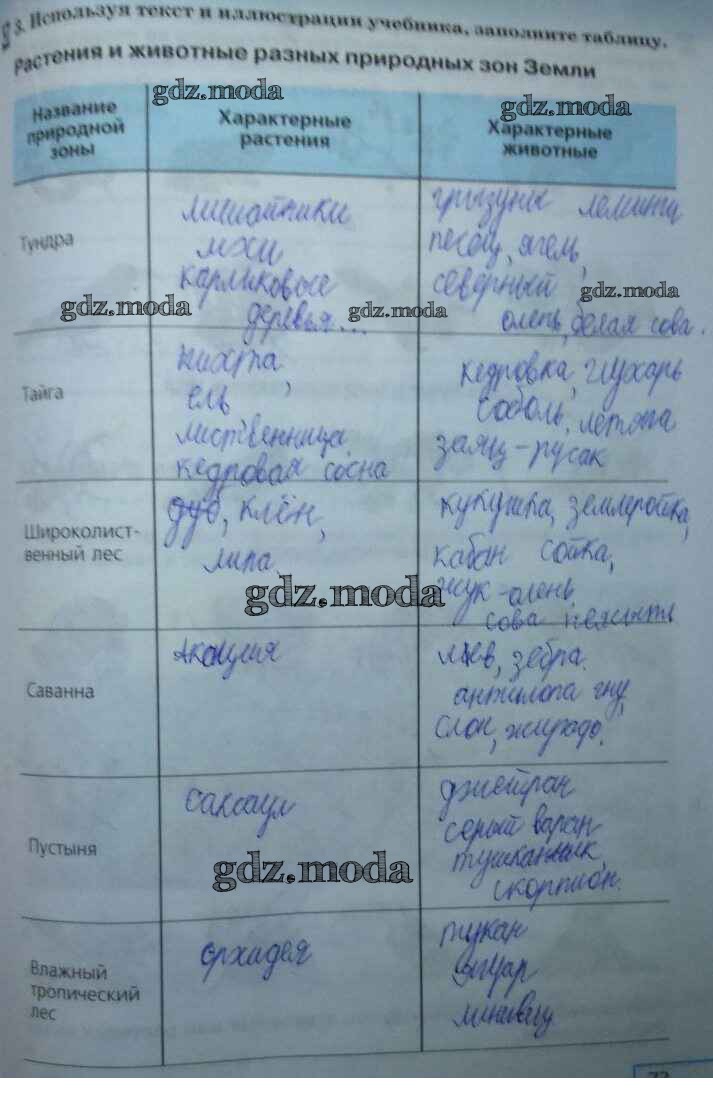 3. Используя текст и иллюстрации учебника, заполните таблицу.
Растения и животные разных природных зон Земли
gdz.moda
gdz.moda
Название
природной
зоны
Характерные
растения
Характерные
животные
Тундра
лишайники
мхи
карликовые
деревья...
грызуны лемминги
песец, ягель,
северный
олень, белая сова.
gdz.moda
gdz.moda
gdz.moda
Тайга
пихта,
ель
лиственница
кедровая сосна
кедровка, глухарь
соболь, летяга
заяц-русак
Широколист-
венный лес
дуб, клён,
липа
кукушка, землеройка,
кабан сойка,
жук-олень,
сова неясыть
gdz.moda
Саванна
Акация
лев, зебра.
антилопа гну,
слон, жирафо.
Пустыня
саксаул
джейран
серый варан
тушканчик,
скорпион.
gdz.moda
Влажный
тропический
лес
орхидея
тукан
ягуар